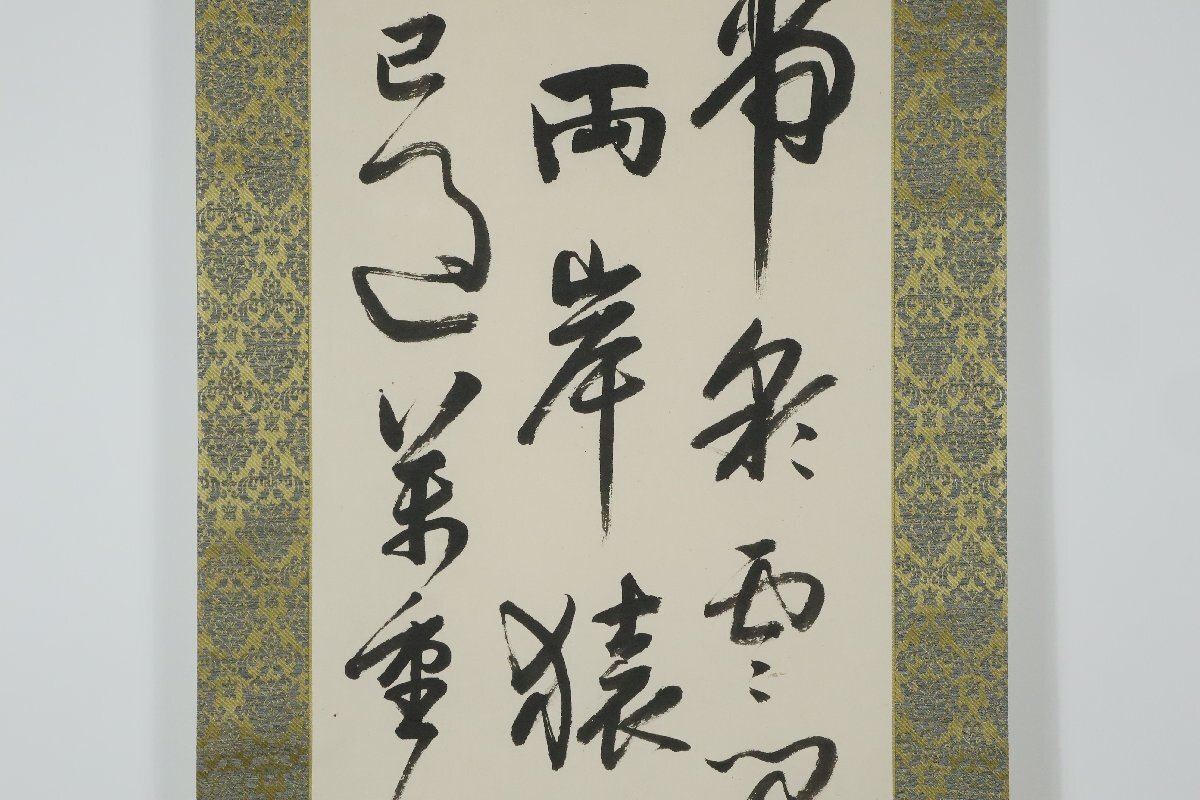 帝彩雲間
両岸猿
已過萬重